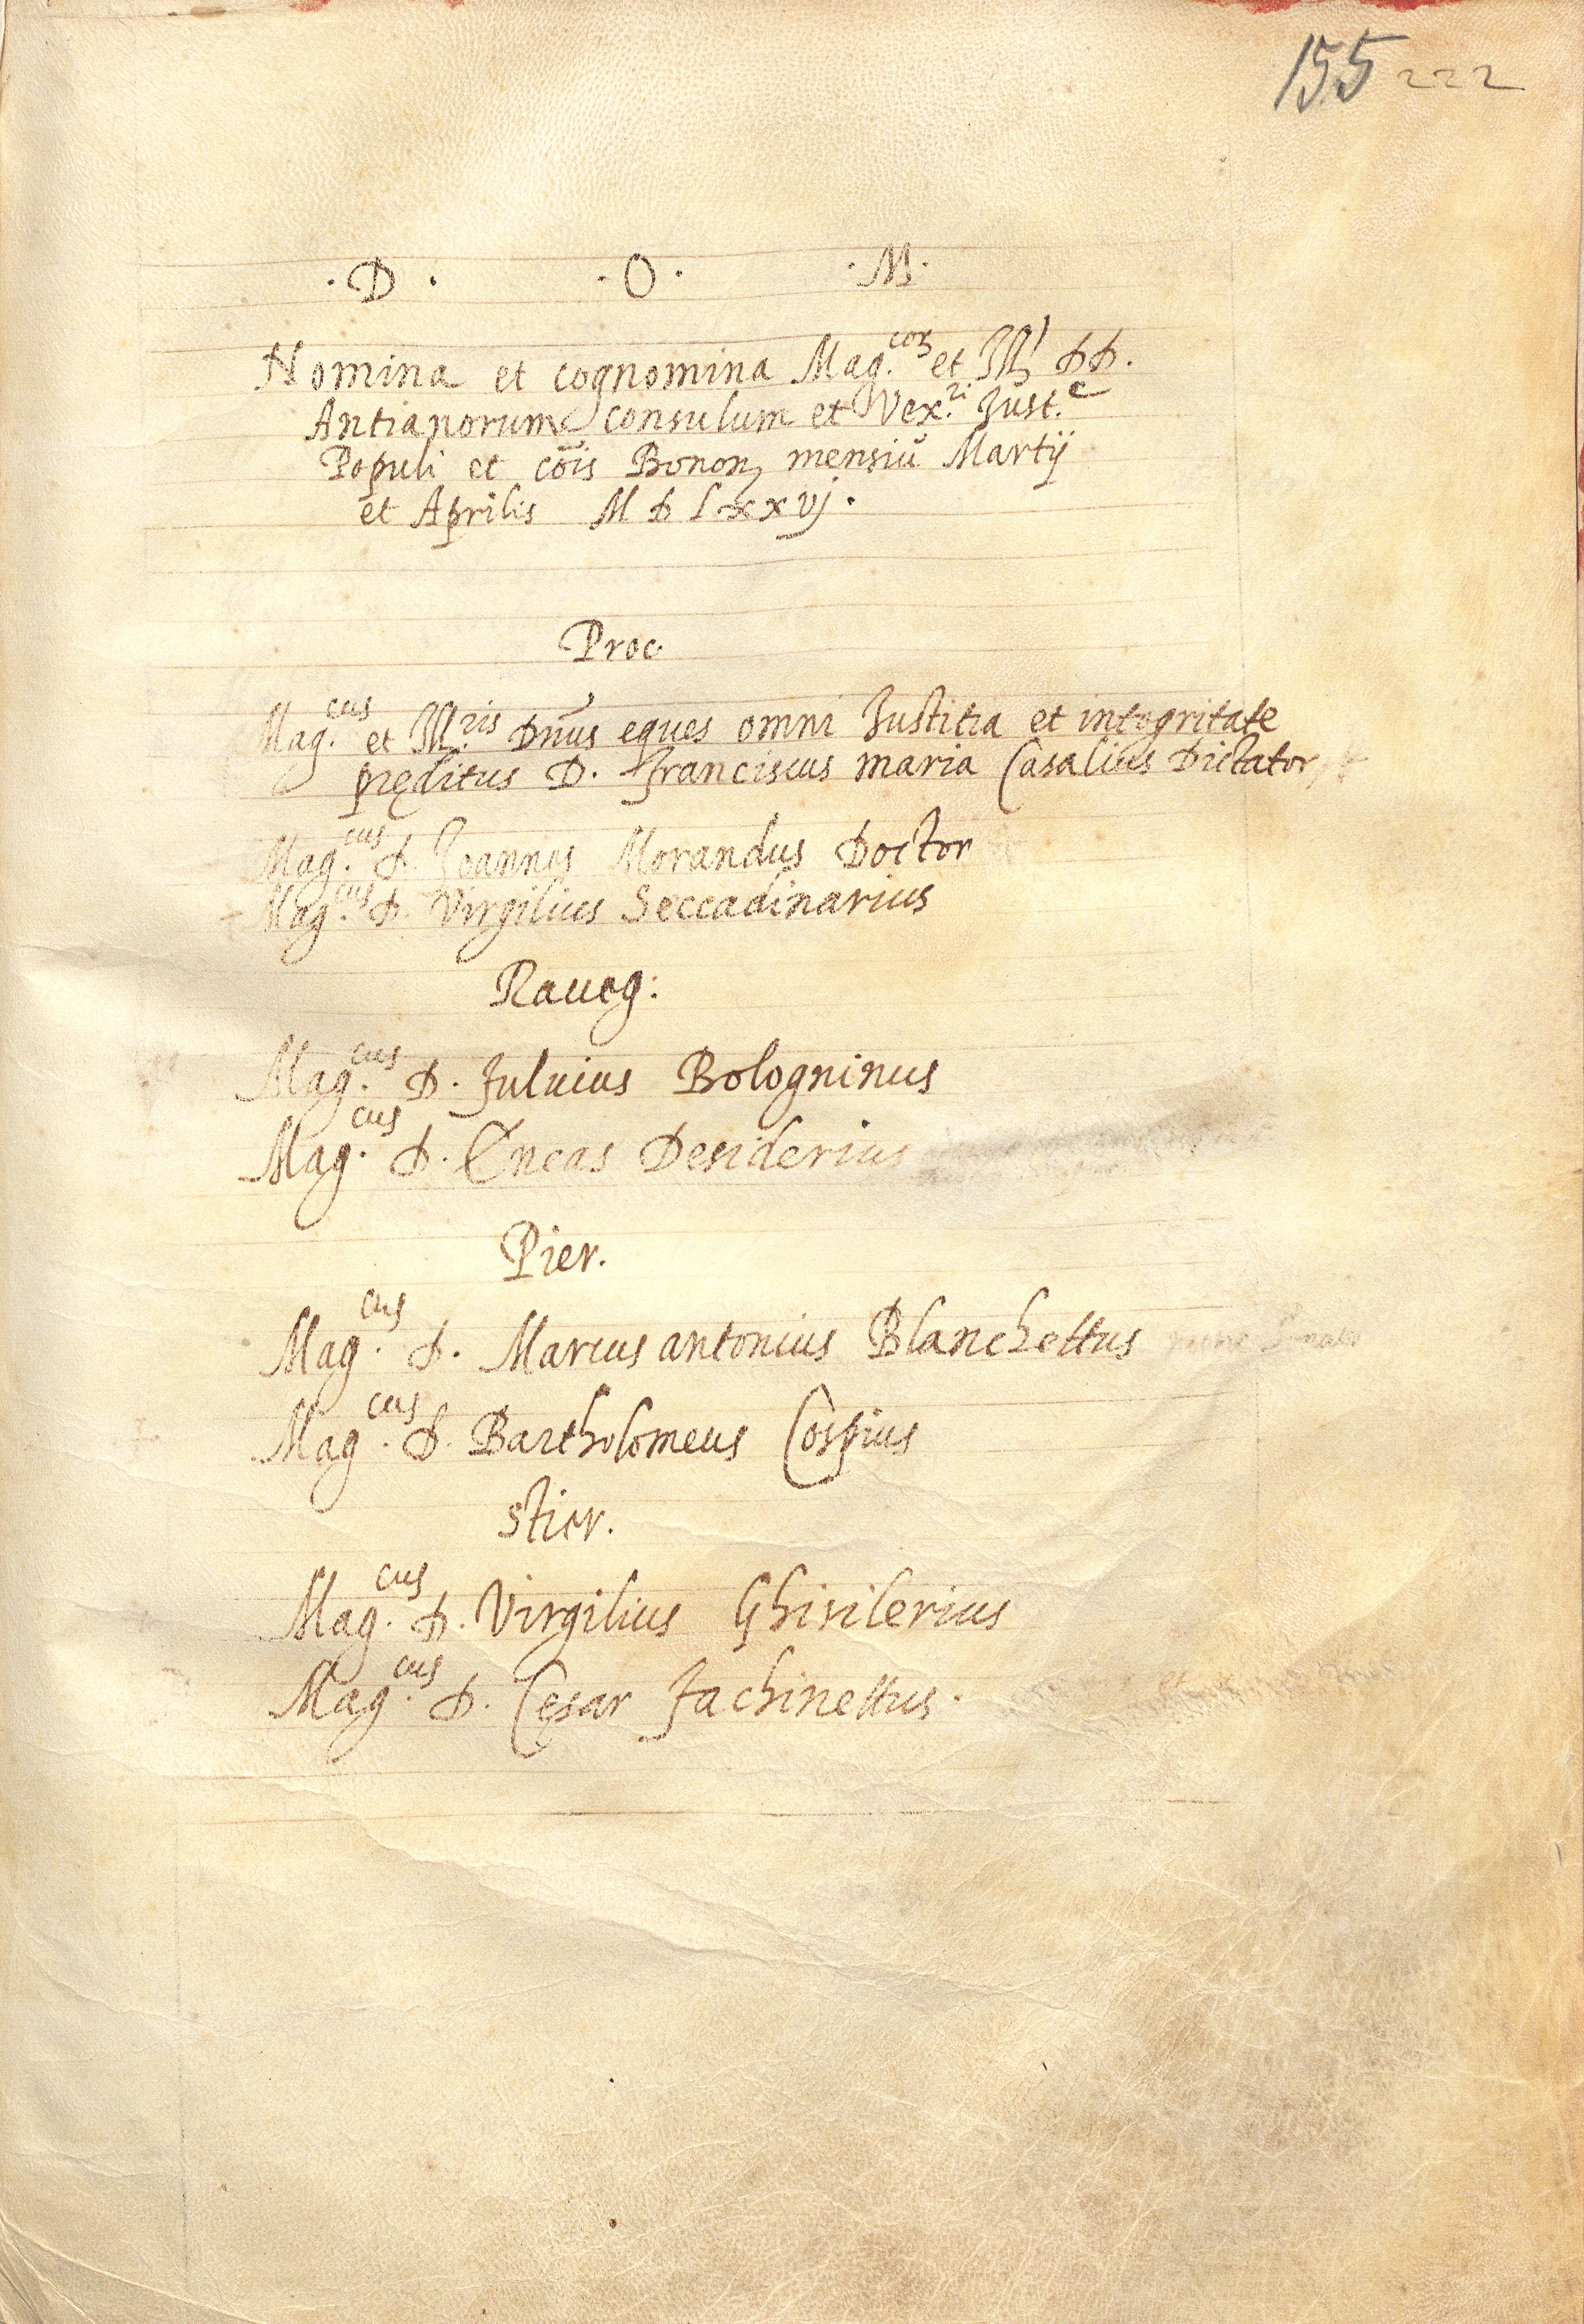 155 222
· D · · O · · M ·
Nomina et cognomina Mag.coꝝ et Ill. DD.
Antianorum consulum et Vex.ri Just.e
Populi et cōis Bonon. mensiū Martij
et Aprilis M D Lxxvj.
Proc.
Mag.cus et Ill.ris Dn̄us eques omni Justitia et integritate
pręditus D. Franciscus maria Casalius Dictator
Mag.cus D. Joannes Morandus Doctor
Mag.cus D. Virgilius Seccadinarius
Raueg:
Mag.cus D. Fuluius Bologninus
Mag.cus D. Eneas Desiderius
Pier.
Mag.cus D. Marcus antonius Blanchettus
Mag.cus D. Bartholomeus Cospius
Stier.
Mag.cus D. Virgilius Ghisilerius
Mag.cus D. Cęsar Fachinettus.